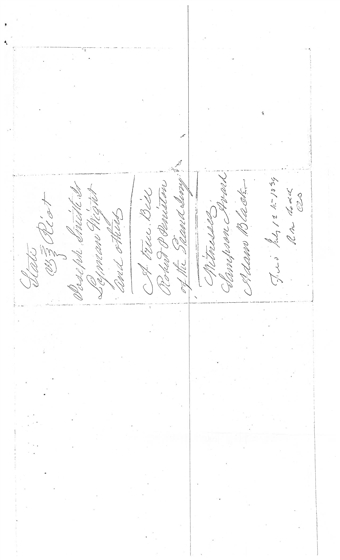 State
vs } Riot
Joseph Smith Jr
Lyman Wight
and others
A true Bill
Robert P Peniston
of the Grand Jury
Witnesses
Sampson Avard
Adam Black
12 1839